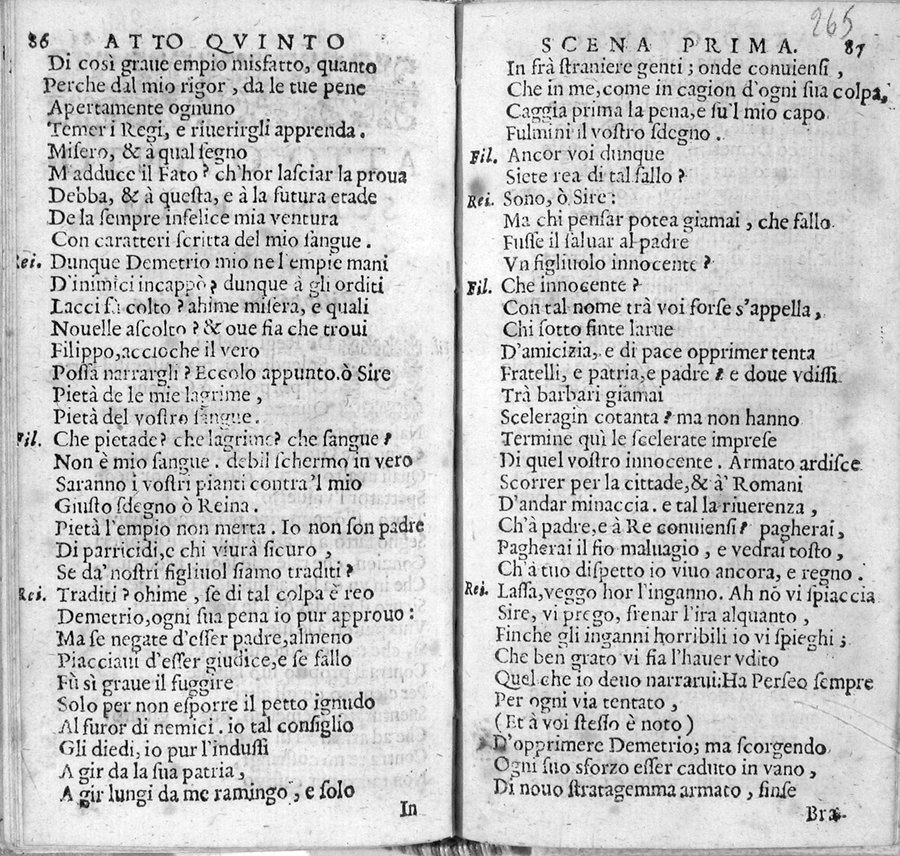 86 ATTO QVINTO
Di così graue empio misfatto, quanto
Perche dal mio rigor, da le tue pene
Apertamente ognuno
Temer i Regi, e riuerirgli apprenda.
Misero, & à qual segno
M'adduce il Fato? ch'hor lasciar la proua
Debba, & à questa, e à la futura etade
De la sempre infelice mia ventura
Con caratteri scritta del mio sangue.
Rei. Dunque Demetrio mio ne l'empie mani
D'inimici incappò? dunque à gli orditi
Lacci fù colto? ahime misera, e quali
Nouelle ascolto? & oue fia che troui
Filippo, accioche il vero
Possa narrargli? Eccolo appunto. ò Sire
Pietà de le mie lagrime,
Pietà del vostro sangue.
Fil. Che pietade? che lagrime? che sangue?
Non è mio sangue. debil schermo in vero
Saranno i vostri pianti contra'l mio
Giusto sdegno ò Reina.
Pietà l'empio non merta. Io non son padre
Di parricidi, e chi viurà sicuro,
Se da' nostri figliuol siamo traditi?
Rei. Traditi? ohime, se di tal colpa è reo
Demetrio, ogni sua pena io pur approuo:
Ma se negate d'esser padre, almeno
Piacciaui d'esser giudice, e se fallo
Fù sì graue il fuggire
Solo per non esporre il petto ignudo
Al furor di nemici. io tal consiglio
Gli diedi, io pur l'indussi
A gir da la sua patria,
A gir lungi da me ramingo, e solo
In
265
SCENA PRIMA. 87
In frà straniere genti; onde conuiensi,
Che in me, come in cagion d'ogni sua colpa,
Caggia prima la pena, e su'l mio capo
Fulmini il vostro sdegno.
Fil. Ancor voi dunque
Siete rea di tal fallo?
Rei. Sono, ò Sire:
Ma chi pensar potea giamai, che fallo
Fusse il saluar al padre
Vn figliuolo innocente?
Fil. Che innocente?
Con tal nome trà voi forse s'appella,
Chi sotto finte larue
D'amicizia, e di pace opprimer tenta
Fratelli, e patria, e padre? e doue vdissi
Trà barbari giamai
Sceleragin cotanta? ma non hanno
Termine quì le scelerate imprese
Di quel vostro innocente. Armato ardisce
Scorrer per la cittade, & à' Romani
D'andar minaccia. e tal la riuerenza,
Ch'à padre, e à Re conuiensi? pagherai,
Pagherai il fio maluagio, e vedrai tosto,
Ch'à tuo dispetto io viuo ancora, e regno.
Rei. Lassa, veggo hor l'inganno. Ah nō vi spiaccia
Sire, vi prego, frenar l'ira alquanto,
Finche gli inganni horribili io vi spieghi;
Che ben grato vi fia l'hauer vdito
Quel che io deuo narrarui: Ha Perseo sempre
Per ogni via tentato,
(Et à voi stesso è noto)
D'opprimere Demetrio; ma scorgendo
Ogni suo sforzo esser caduto in vano,
Di nouo stratagemma armato, finse
Bra-